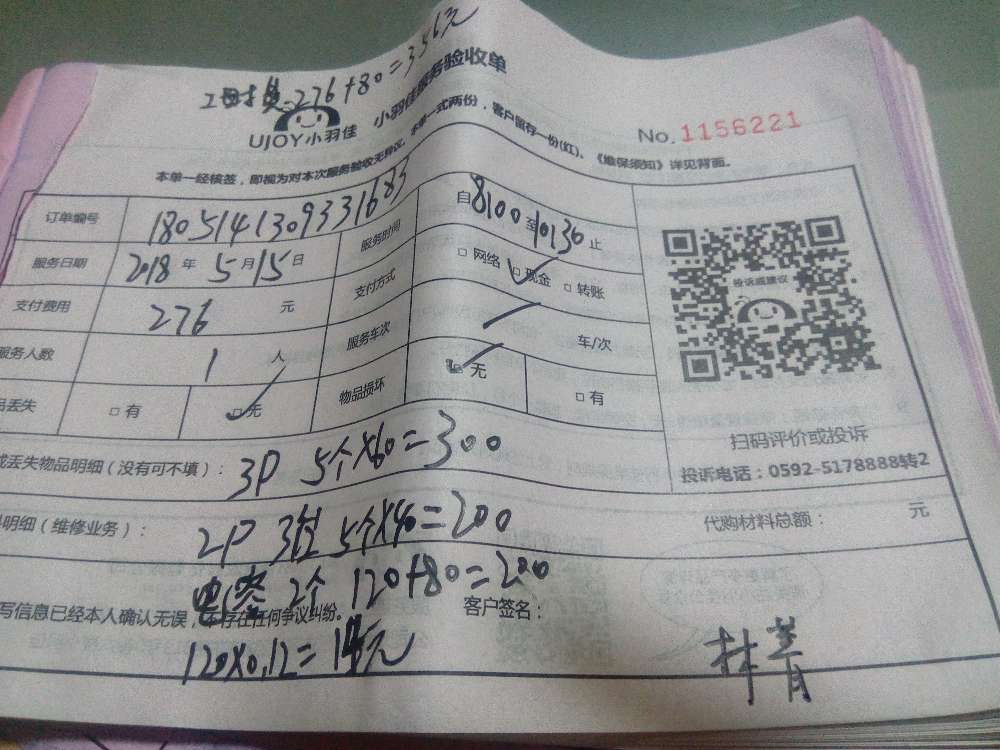 276+80=356元
UJOY小羽佳 小羽佳服务验收单
No.1156221
本单一经核签，即视为对本次服务验收无异议。本单一式两份，客户留存一份(红)。《维保须知》详见背面。
订单编号 1805141309331683 服务时间 自8:00至10:30止
服务日期 2018年5月15日 支付方式 □网络 □现金 □转账
支付费用 276 元 服务车次 车/次
服务人数 1 人 物品损坏 □无 □有
丢失 □有 □无
投诉或建议
扫码评价或投诉
投诉电话：0592-5178888转2
丢失物品明细（没有可不填）： 3P 5个×60=300
明细（维修业务）： 2P 5个×40=200 代购材料总额： 元
电容 2个 120+80=200
写信息已经本人确认无误，不存在任何争议纠纷。 客户签名：
120×0.12= 元
林青